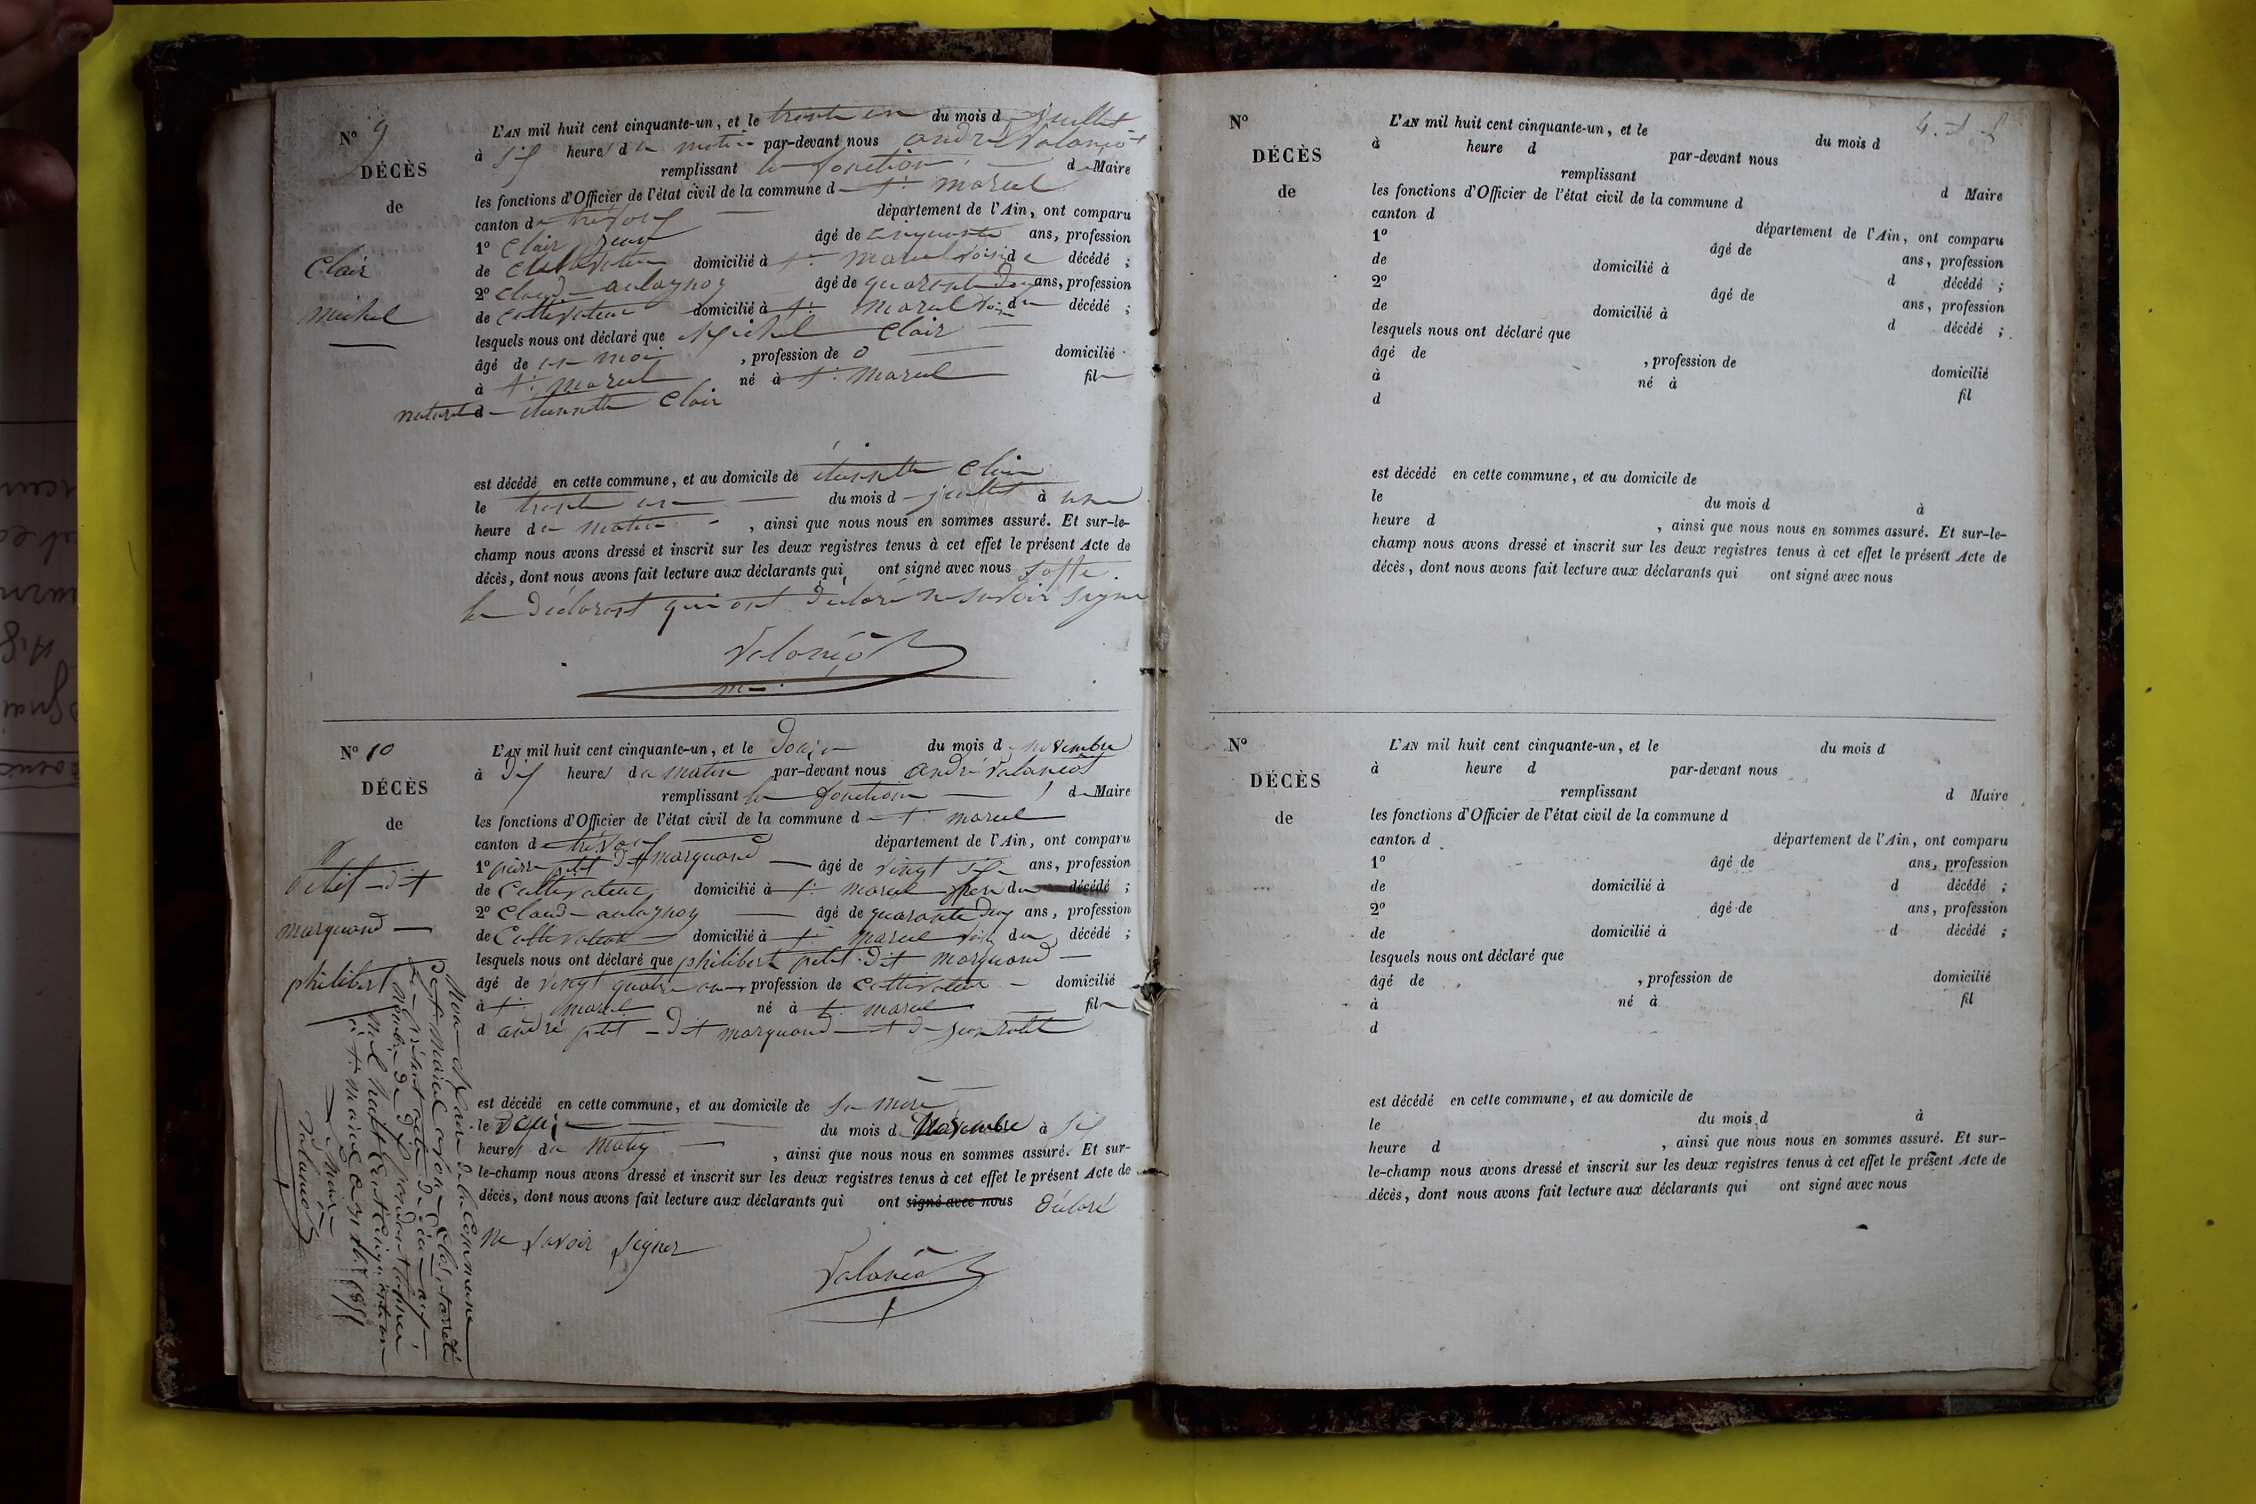 N° 9
DÉCÈS
de
Clair
michel
L'AN mil huit cent cinquante-un, et le trente un du mois d juillet
à six heures du matin par-devant nous andré Valançot
remplissant les fonction de Maire
les fonctions d'Officier de l'état civil de la commune de St marcel
canton de trévoux département de l'Ain, ont comparu
1° Clair Jean âgé de cinquante ans, profession
de cultivateur domicilié à St marcel voisin décédé ;
2° Claude aulagnoy âgé de quarante deux ans, profession
de cultivateur domicilié à St marcel voisin du décédé ;
lesquels nous ont déclaré que Michel Clair
âgé de un mois , profession de 0 domicilié
à St marcel né à St marcel fils
naturel de étiennette Clair
est décédé en cette commune, et au domicile de étiennette Clair
le trente un du mois de juillet à une
heure du matin , ainsi que nous nous en sommes assuré. Et sur-le-
champ nous avons dressé et inscrit sur les deux registres tenus à cet effet le présent Acte de
décès, dont nous avons fait lecture aux déclarants qui ont signé avec nous
les déclarant qui ont déclaré ne savoir signer
Valançot
N° 10
DÉCÈS
de
Petit dit
marquand
philibert
L'AN mil huit cent cinquante-un, et le Douze du mois de novembre
à Dix heures du matin par-devant nous andré Valançot
remplissant les fonctions de Maire
les fonctions d'Officier de l'état civil de la commune de St marcel
canton de trévoux département de l'Ain, ont comparu
1° pierre petit dit marquand âgé de vingt ans, profession
de Cultivateur domicilié à St marcel frere du décédé ;
2° Claude aulagnoy âgé de quarante deux ans, profession
de Cultivateur domicilié à St marcel voisin du décédé ;
lesquels nous ont déclaré que philibert petit dit marquand
âgé de vingt quatre ans profession de cultivateur domicilié
à St marcel né à St marcel fils
d andré petit dit marquand et de
est décédé en cette commune, et au domicile de sa mère
le Douze du mois de Novembre à six
heures du matin , ainsi que nous nous en sommes assuré. Et sur-
le-champ nous avons dressé et inscrit sur les deux registres tenus à cet effet le présent Acte de
décès, dont nous avons fait lecture aux déclarants qui ont signé avec nous déclaré
ne savoir signer
Valançot
Nous Maire de la Commune
de St Marcel avons Clos et arrêté
le présent acte de décès au
nombre de dix pendant l'année
Mil huit Cent Cinquante un
à St Marcel 1851
le Maire
Valançot
N°
DÉCÈS
de
L'AN mil huit cent cinquante-un, et le du mois d
à heure d par-devant nous
remplissant d Maire
les fonctions d'Officier de l'état civil de la commune d
canton d département de l'Ain, ont comparu
1° âgé de ans, profession
de domicilié à d décédé ;
2° âgé de ans, profession
de domicilié à d décédé ;
lesquels nous ont déclaré que
âgé de , profession de domicilié
à né à fil
d
est décédé en cette commune, et au domicile de
le du mois d à
heure d , ainsi que nous nous en sommes assuré. Et sur-le-
champ nous avons dressé et inscrit sur les deux registres tenus à cet effet le présent Acte de
décès, dont nous avons fait lecture aux déclarants qui ont signé avec nous
N°
DÉCÈS
de
L'AN mil huit cent cinquante-un, et le du mois d
à heure d par-devant nous
remplissant d Maire
les fonctions d'Officier de l'état civil de la commune d
canton d département de l'Ain, ont comparu
1° âgé de ans, profession
de domicilié à d décédé ;
2° âgé de ans, profession
de domicilié à d décédé ;
lesquels nous ont déclaré que
âgé de , profession de domicilié
à né à fil
d
est décédé en cette commune, et au domicile de
le du mois d à
heure d , ainsi que nous nous en sommes assuré. Et sur-
le-champ nous avons dressé et inscrit sur les deux registres tenus à cet effet le présent Acte de
décès, dont nous avons fait lecture aux déclarants qui ont signé avec nous